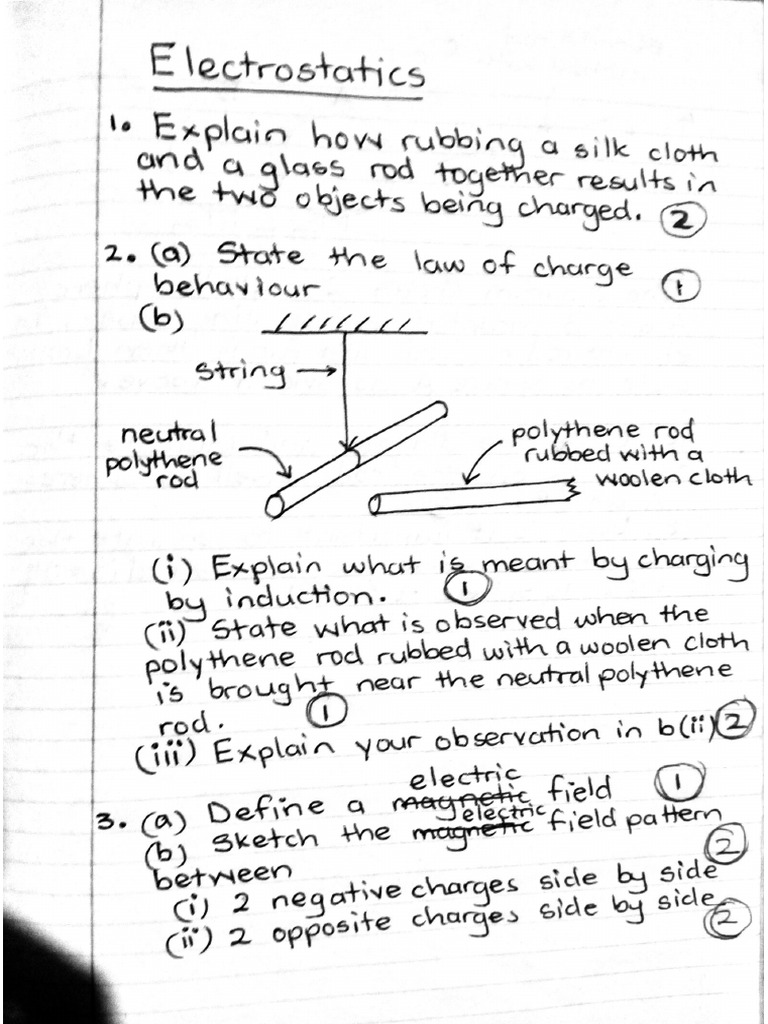 Electrostatics
1. Explain how rubbing a silk cloth
and a glass rod together results in
the two objects being charged. 2
2. (a) State the law of charge
behaviour 1
(b)
string
neutral
polythene
rod
polythene rod
rubbed with a
woolen cloth
(i) Explain what is meant by charging
by induction. 1
(ii) State what is observed when the
polythene rod rubbed with a woolen cloth
is brought near the neutral polythene
rod. 1
(iii) Explain your observation in b(ii) 2
electric
3. (a) Define a magnetic field 1
electric
(b) Sketch the magnetic field pattern
between 2
(i) 2 negative charges side by side
(ii) 2 opposite charges side by side 2